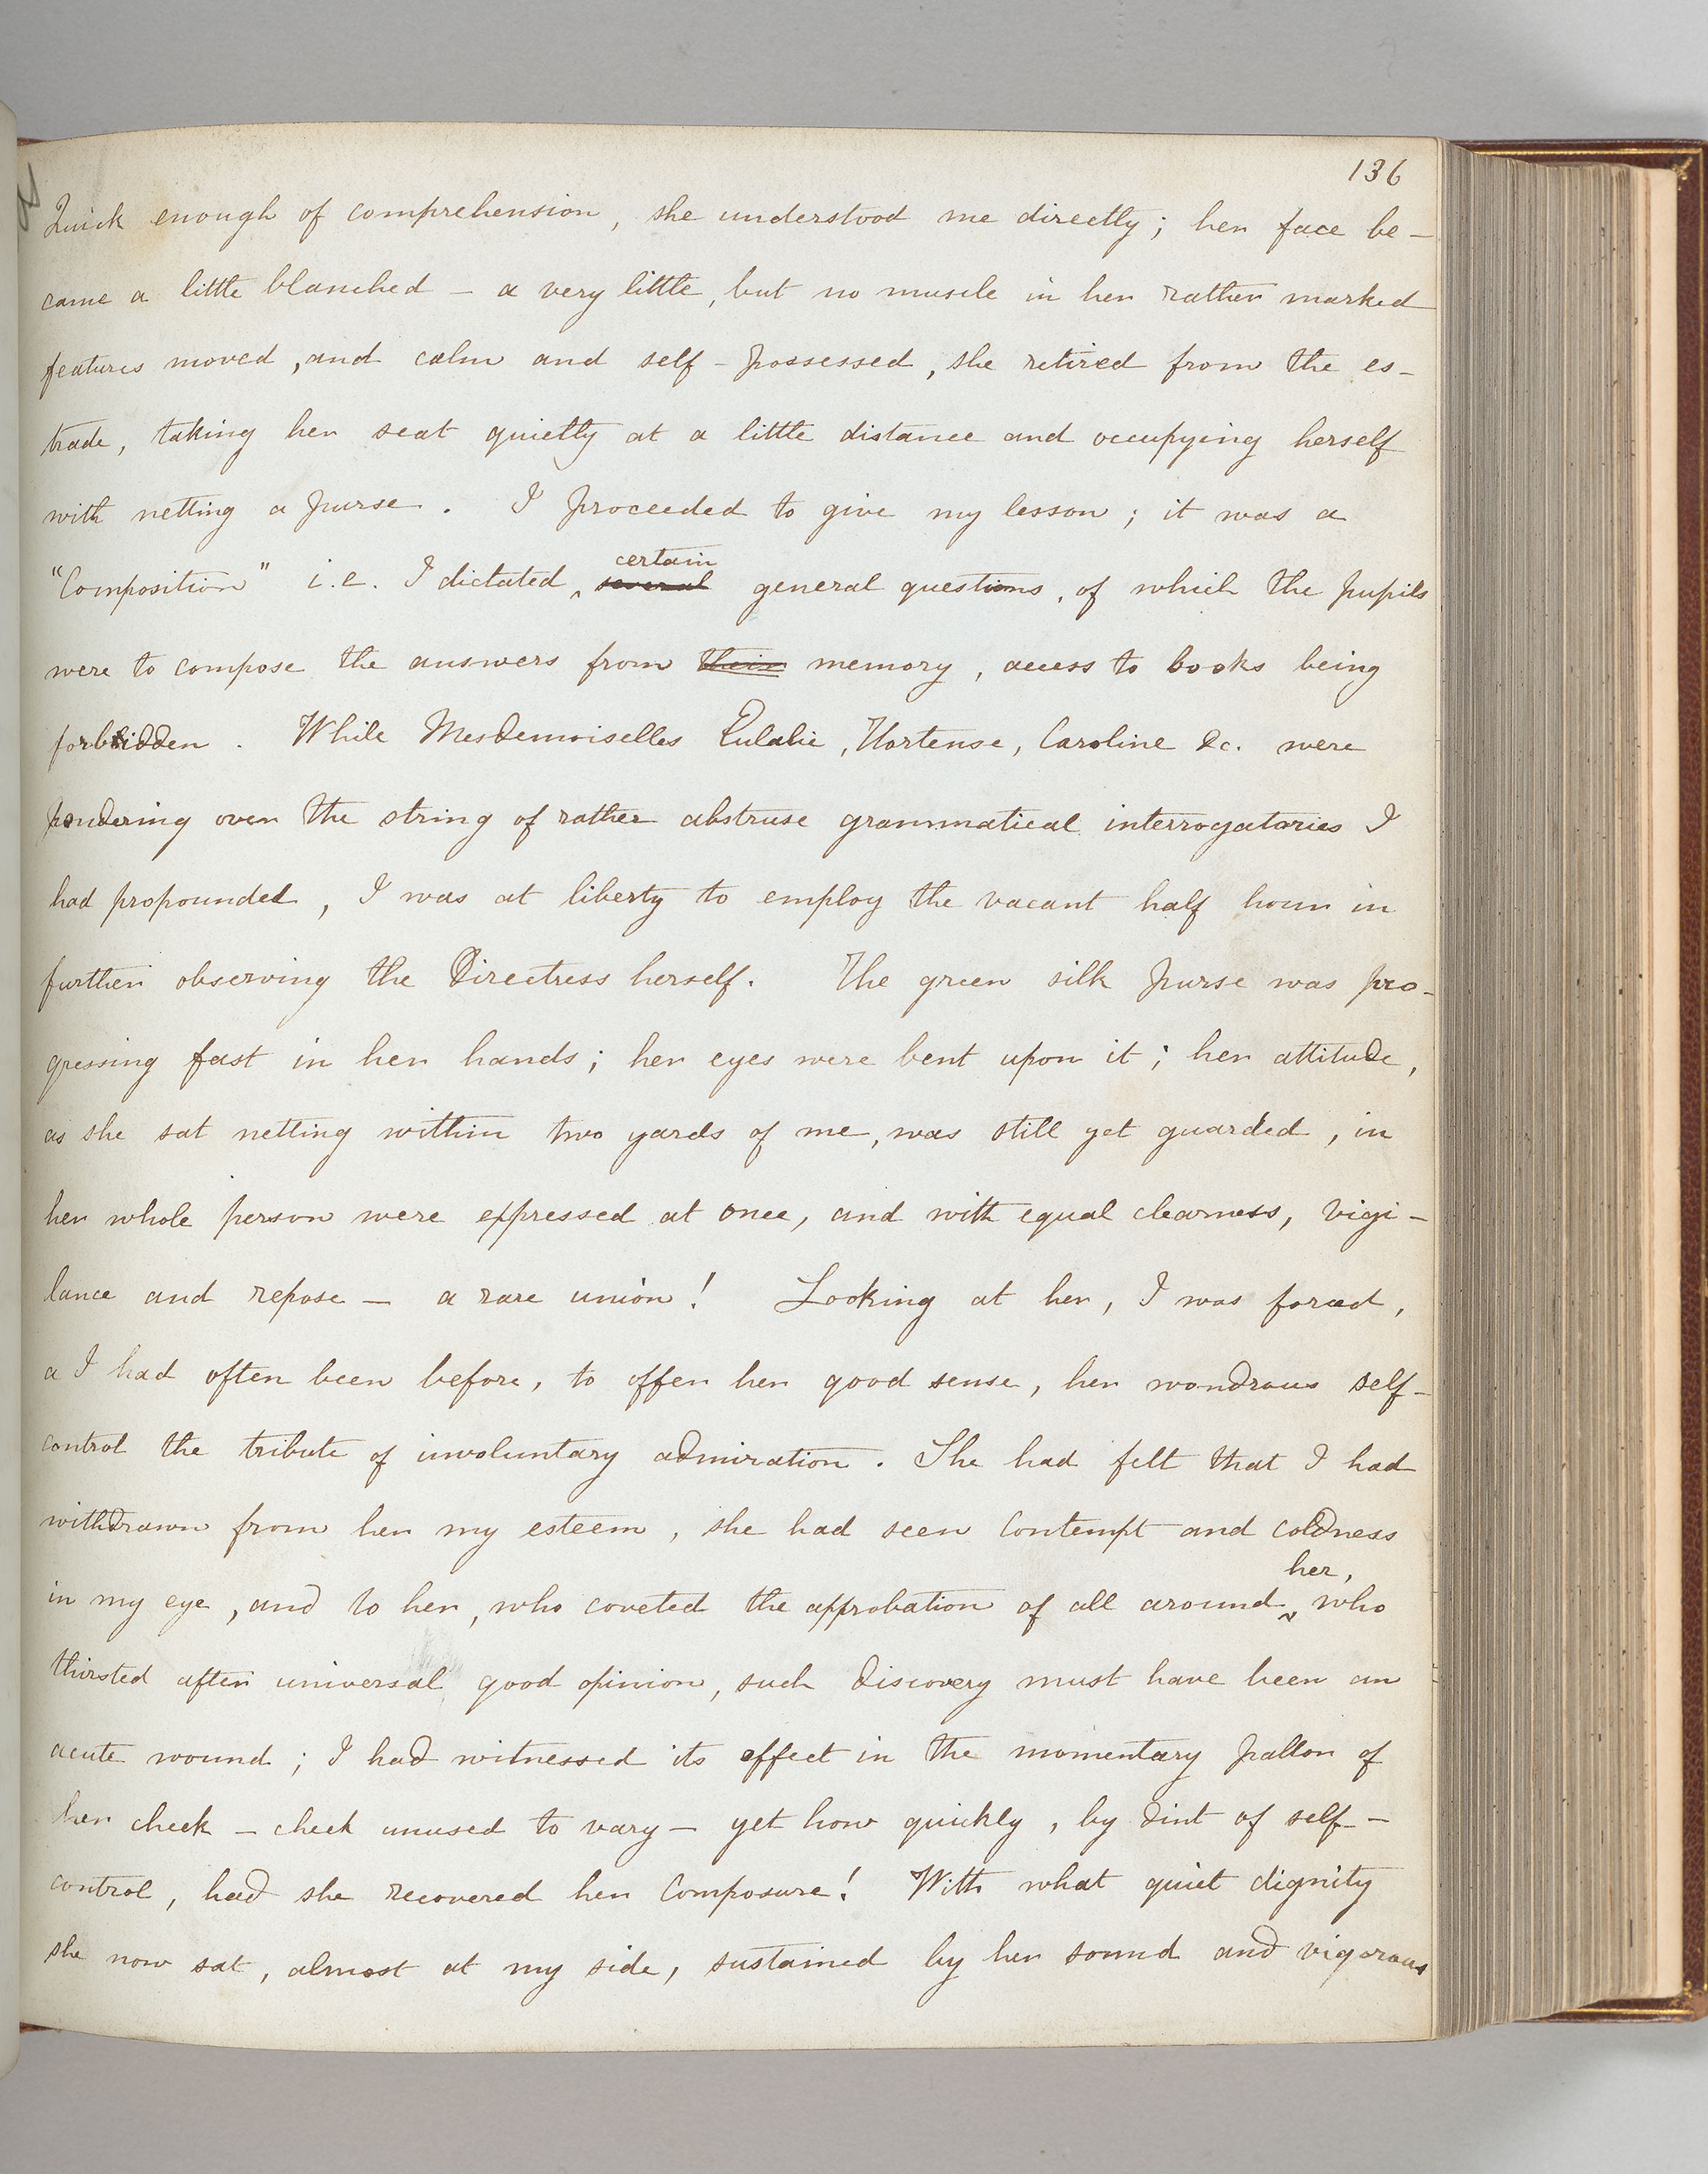 136
Quick enough of comprehension, she understood me directly; her face be-
came a little blanched — a very little, but no muscle in her rather marked
features moved, and calm and self-possessed, she retired from the es-
trade, taking her seat quietly at a little distance and occupying herself
with netting a purse. I proceeded to give my lesson; it was a
certain
"Composition" i.e. I dictated, several general questions, of which the pupils
were to compose the answers from their memory, access to books being
forbidden. While Mesdemoiselles Eulalie, Hortense, Caroline &c. were
pondering over the string of rather abstruse grammatical interrogatories I
had propounded, I was at liberty to employ the vacant half hour in
further observing the Directress herself. The green silk purse was pro-
gressing fast in her hands; her eyes were bent upon it; her attitude,
as she sat netting within two yards of me, was still yet guarded, in
her whole person were expressed at once, and with equal clearness, vigi-
lance and repose — a rare union! Looking at her, I was forced,
a I had often been before, to offer her good sense, her wondrous self-
control the tribute of involuntary admiration. She had felt that I had
withdrawn from her my esteem, she had seen contempt and coldness
her,
in my eye, and to her, who coveted the approbation of all around who
thirsted after universal good opinion, such discovery must have been an
acute wound; I had witnessed its effect in the momentary pallor of
her cheek — cheek unused to vary — yet how quickly, by dint of self-
control, had she recovered her composure! With what quiet dignity
she now sat, almost at my side, sustained by her sound and vigorous